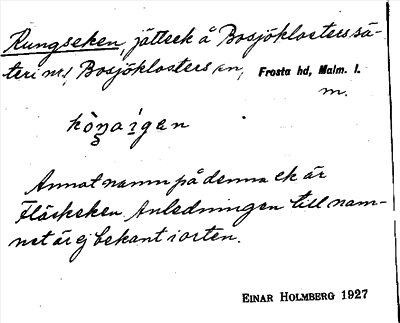 Kungseken, jätteek å Bosjöklosters sä-
teri m.l, Bosjöklosters sn, Frosta hd, Malm. l.
m.
Annat namn på denna ek är
Fläskeken. Anledningen till nam-
net är ej bekant i orten.
EINAR HOLMBERG 1927